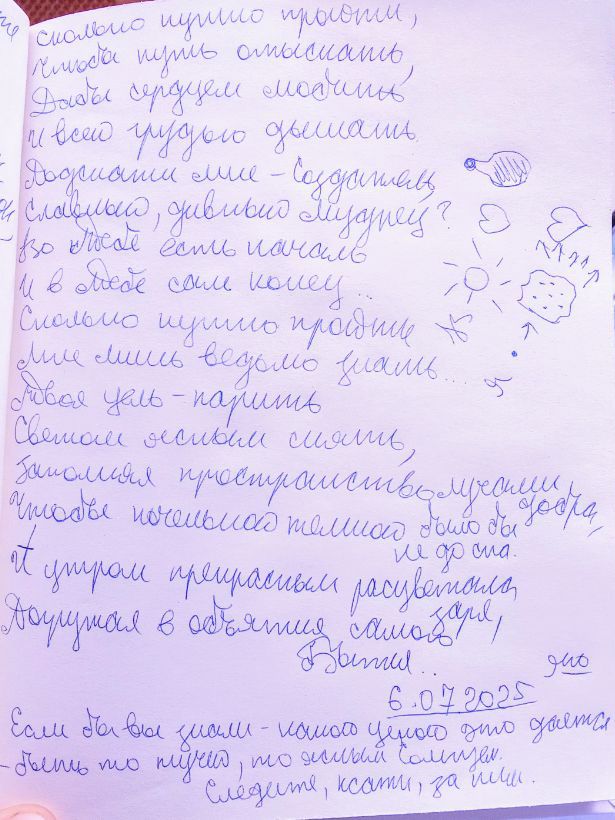 сколько нужно пройти,
Чтобы путь отыскать,
Дабы сердцем любить
И всей грудью дышать
Подскажи мне - Создатель,
Славный, дивный Мудрец?
Во Тебе есть начало
И в Тебе сам конец...
Сколько нужно пройти
Мне лишь ведомо знать...
Твоя цель - парить
Светом ясным сиять,
Заполняя пространство лучами
добра,
Чтобы ночью темной было бы
не до сна.
И утром прекрасным расцветала
заря,
Погружая в объятия самого
Бытия..
6.07.2025
Если бы вы знали - какой ценой это дается
- быть то тучей, то ясным Солнцем.
Следите, кстати, за ним.